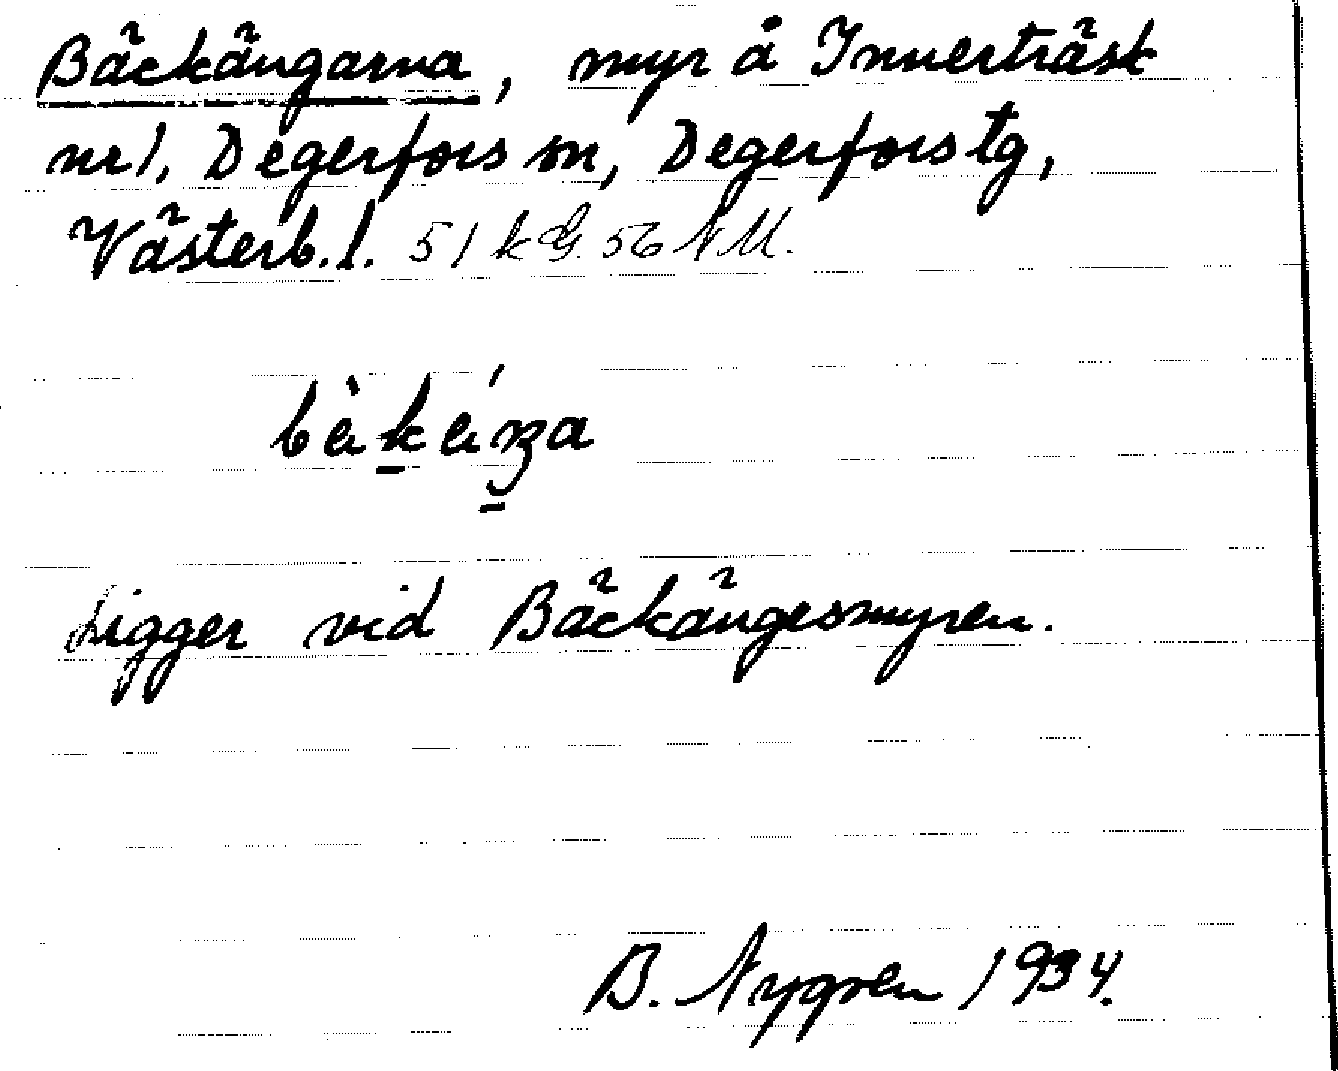 Bäckängarna, myr å Innerträsk
nr 1, Degerfors sn, Degerfors tg,
Västerb. l. 51 k G. 56 N M.
Ligger vid Bäckängesmyren.
B. Nygren 1934.